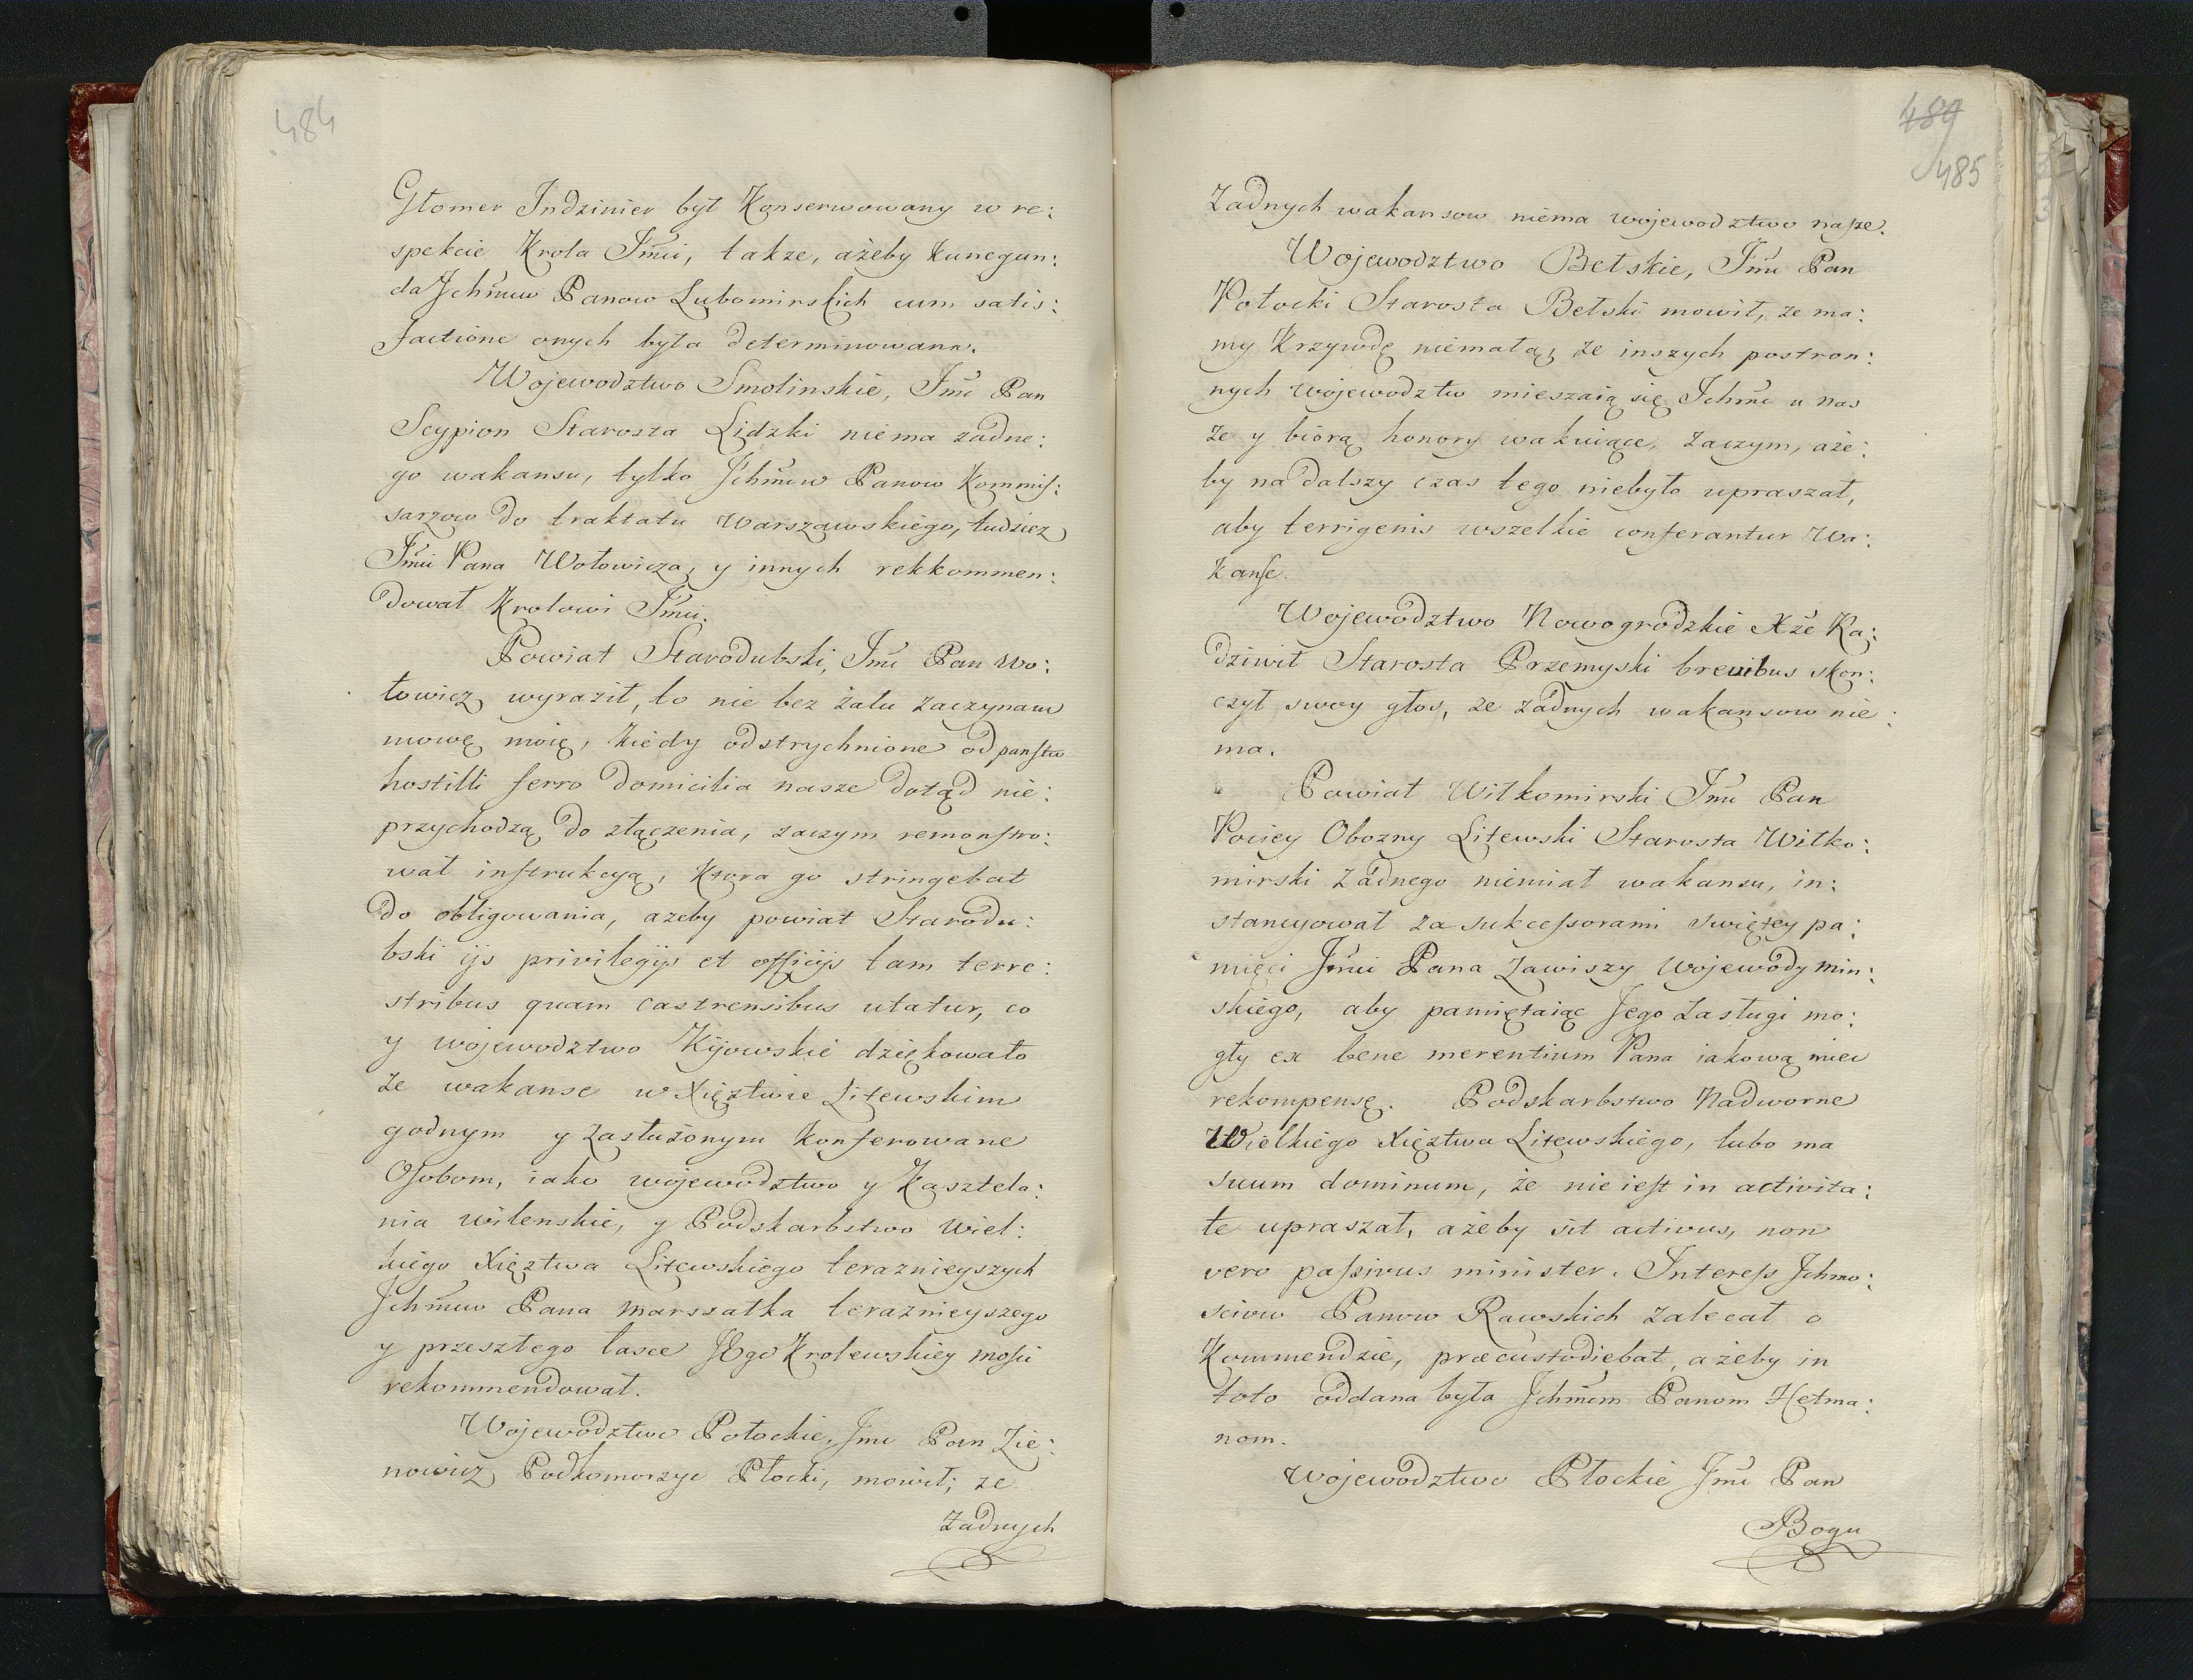 484
Głomer Indzinier był Konserwowany w re:
spekcie Krola Jmći, także, ażeby kunegun:
da Jchmćiow Panow Lubomirskich cum satis:
factione onych była determinowana.
Wojewodztwo Smolinskie, Jmć Pan
Scypion Starosta Lidzki niema zadne:
go wakansu, tylko Jchmćiow Panow Kommis:
sarzow do traktatu Warszawskiego, tudziez
Jmći Pana Wołowicza, y innych rekkommen:
dował Krolowi Jmći.
Powiat Starodubski, Jmć Pan Wo:
łowicz wyraził, to nie bez żalu zaczynam
mowę moię, kiedy odstrychnione od państw
hostilli ferro domicilia nasze dotąd nie:
przychodzą do złączenia, zaczym remonstro:
wał instrukcyą, Ktora go stringebat
do obligowania, azeby powiat Starodu:
bski ijs privilegijs et officijs tam terre:
stribus quam castrensibus utatur, co
y wojewodztwo Kijowskie dziękowało
że wakanse w Xięztwie Litewskim
godnym y zasłużonym konferowane
Osobom, iako wojewodztwo y Kasztela:
nia wilenskie, y Podskarbstwo Wiel:
kiego Xięztwa Litewskiego teraznieyszych
Jchmćiow Pana Marszałka teraznieyszego
y przeszłego łasce JEgo Krolewskiey mości
rekommendował.
Wojewodztwo Połockie, Jmć Pan Zie:
nowicz Podkomorzyc Płocki, mowił; ze
Zadnych
489
485
Zadnych wakansow niema wojewodztwo nasze.
Wojewodztwo Bełskie, Jmć Pan
Potocki Starosta Bełski mowił, ze ma:
my Krzywdę niemałą, że inszych postron:
nych wojewodztw mieszaią się Jchmć u nas
że y biorą honory wakuiące, zaczym, aże:
by na dalszy czas tego niebyło upraszał,
aby terrigenis wszelkie conferantur Wa:
kanse.
Wojewodztwo Nowogrodzkie Xże Ra:
dziwił Starosta Przemyski brevibus skon:
czył swoy głos, ze zadnych wakansow nie:
ma.
Powiat Wiłkomirski Jmć Pan
Pociey Obozny Litewski Starosta Wiłko:
mirski zadnego niemiał wakansu, in:
stancyował za sukcessorami swiętey pa:
mięci Jmći Pana Zawiszy Wojewody Min:
skiego, aby pamiętaiąc Jego zasługi mo:
gły ex bene merentium Pana iakową mieć
rekompensę. Podskarbstwo Nadworne
Wielkiego Xięztwa Litewskiego, lubo ma
suum dominum, że nie iest in activita:
te upraszał, ażeby sit activus, non
vero passivus minister. Interess Jchmo:
sciow Panow Rawskich zalecał o
Kommendzie, præcustodiebat, ażeby in
toto oddana była Jchmćiom Panom Hetma:
nom.
Wojewodztwo Płockie Jmć Pan
Bogu